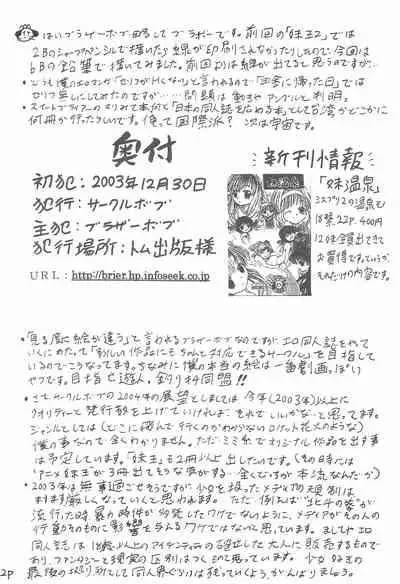 はいブラザーボブ略してブラボーです。前回の「妹王2」では
2Bのシャープペンシルで描いたら線が印刷されなかったりしたので、今回は
6Bの鉛筆で描いてみました。前回よりは線が出てると思うのですが…
・どうも僕のエロマンガ「セリフが
と言われるので
に帰った日」では
セリフ無しにしてみたのですが………問題は動きやアングルと判明。
・スイートブライアーのマリみて本が
「日本の同人誌を広める本」として台湾かどこかに
何冊か行ったらしいです。俺って国際派？次は宇宙です。
奥付
初犯：2003年12月30日
犯行：サークルボブ
主犯：ブラザーボブ
犯行場所：トム出版様
URL：http://brier.hp.infoseek.co.jp
新刊情報
「妹温泉」
ミスプリ2の温泉も
18禁22P.400円
12妹全員出てきて
お買得です。っていうか、
それだけの内容です。
・「見る度に絵が違う」と言われるブラザーボブなのですが、エロ同人誌をやって
いくにあたって「新しい作品にもちゃんと対応できるサークル」を目指して
いるのでこうなってます。ちなみに僕の本当の絵は一番劇画っぽい
やつです。目指せ遊人、釣り
同盟!!
・さてサークルボブの2004年の展望としましては今年(2003年)以上に
クオリティーと発行数を上げていければ、それでいいかな〜と思ってます。
ジャンルとしては(どこに飛んで行くのかわからないロケット花火のような)
僕の事なので全くわかりません。ただミミ系でオリジナル作品を出す事
は予定しています。「妹王」も2冊以上出したいです。(その時には
「アニメ妹王」が3冊出てそうな気がする…全くどちらが本流なんだか)
・2003年は無事過ごせそうですが少女を扱ったメディアの規制は
ますます厳しくなっていくと思われます。ただ、例えば「北斗の拳」が
流行った時暴力時件が多発したワケでないように、メディアがその人の
行動そのものに影響を与えるワケではないと思っています。ましてやエロ
同人誌は18歳以上のアイデンティティの確立した大人に販売するもので
あり、ファンタジーと現実の区別はつくものと思っています。少女
の
最後の
としての同人界ぐらいは残っていくよう、がんばりましょう。
2P